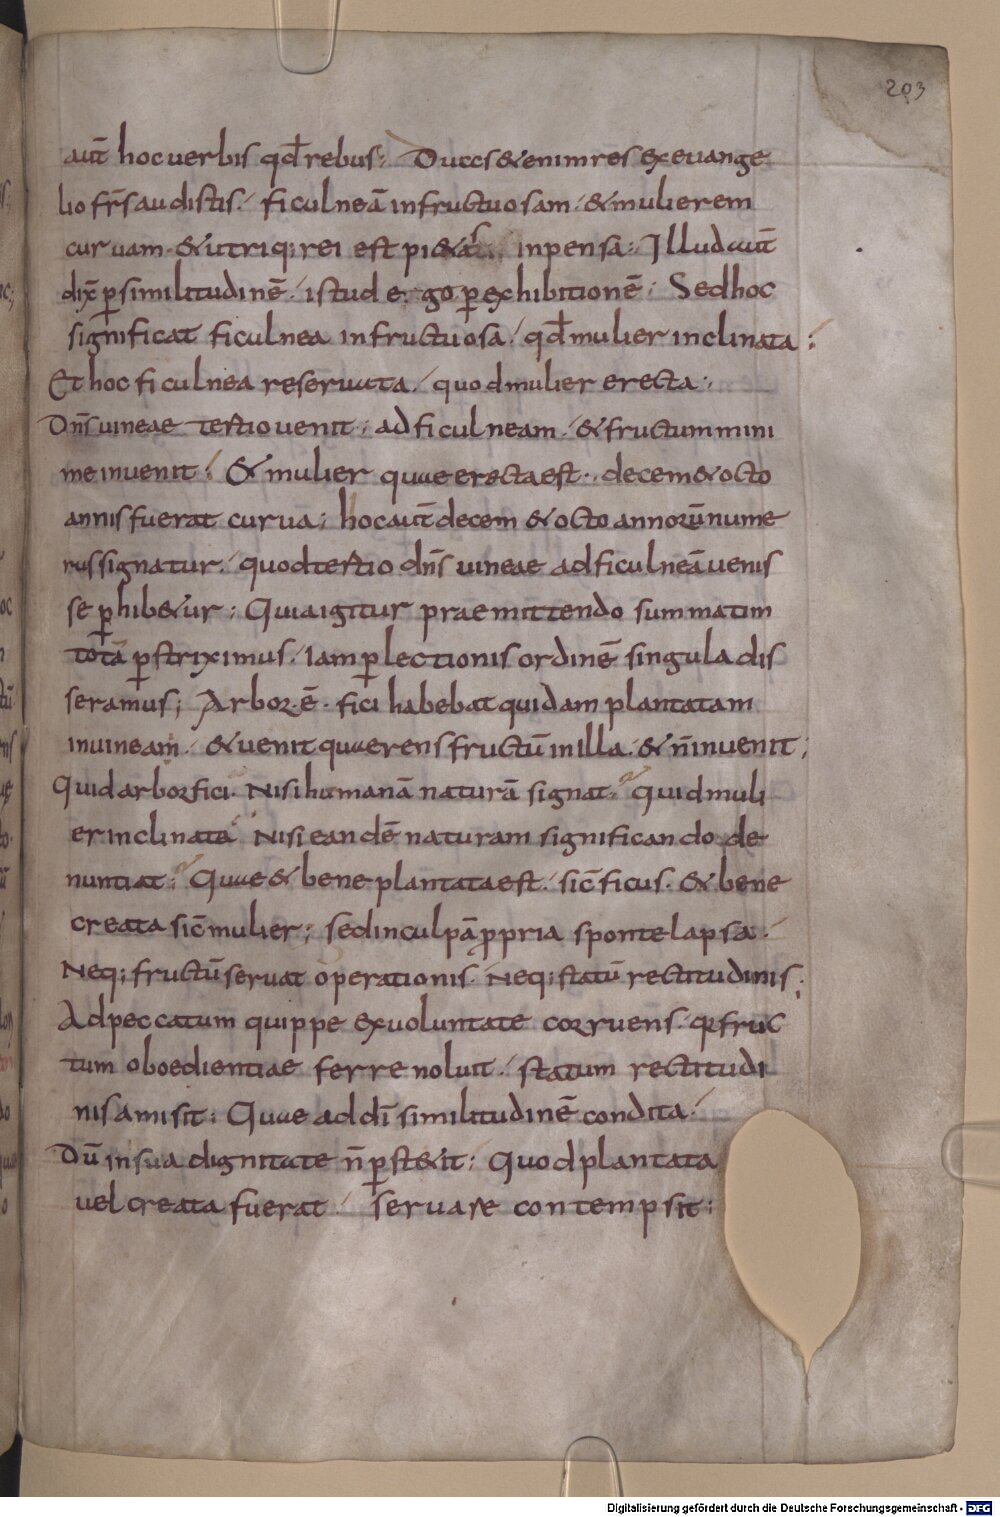 203
aut̄ hoc uerbis qd̄ rebus; Duas & enim res ex euange
lio fr̄s audistis. ficulneā infructuosam. & mulierem
curuam. & utriq; rei est pi&as inpensa; Illud aut̄
dix̄ p̱ similitudinē. istud ergo p̱ exhibitionē; Sed hoc
significat ficulnea infructuosa. qd̄ mulier inclinata;
Et hoc ficulnea reseruata. quod mulier erecta;
Dn̄s uineae tertio uenit; ad ficulneam. & fructum mini
me inuenit; & mulier quae erecta est. decem & octo
annis fuerat curua; hoc aut̄ decem & octo annorū nume
rus signatur. quod tertio dn̄s uineae ad ficulneā uenis
se p̱hib&ur; Quia igitur praemittendo summatim
totā p̱strinximus. Iam p̱ lectionis ordinē singula dis
seramus; Arborē fici habebat quidam plantatam
in uineam. & uenit quaerens fructū in illa. & n̄ inuenit;
Quid arbor fici. Nisi humanā naturā signat. Quid muli
er inclinata Nisi eandē naturam significando de
nuntiat; Quae & bene plantata est. sic̄ ficus. & bene
creata sic̄ mulier; sed in culpā ꝓpria sponte lapsa.
Neq; fructū seruat operationis. Neq; statū rectitudinis;
Ad peccatum quippe ex uoluntate corruens. qꝛ fruc
tum oboedientiae ferre noluit. statum rectitudi
nis amisit; Quae ad dī similitudinē condita.
Dū in sua dignitate n̄ p̱stetit; Quod plantata
uel creata fuerat. seruare contempsit;
Digitalisierung gefördert durch die Deutsche Forschungsgemeinschaft - DFG